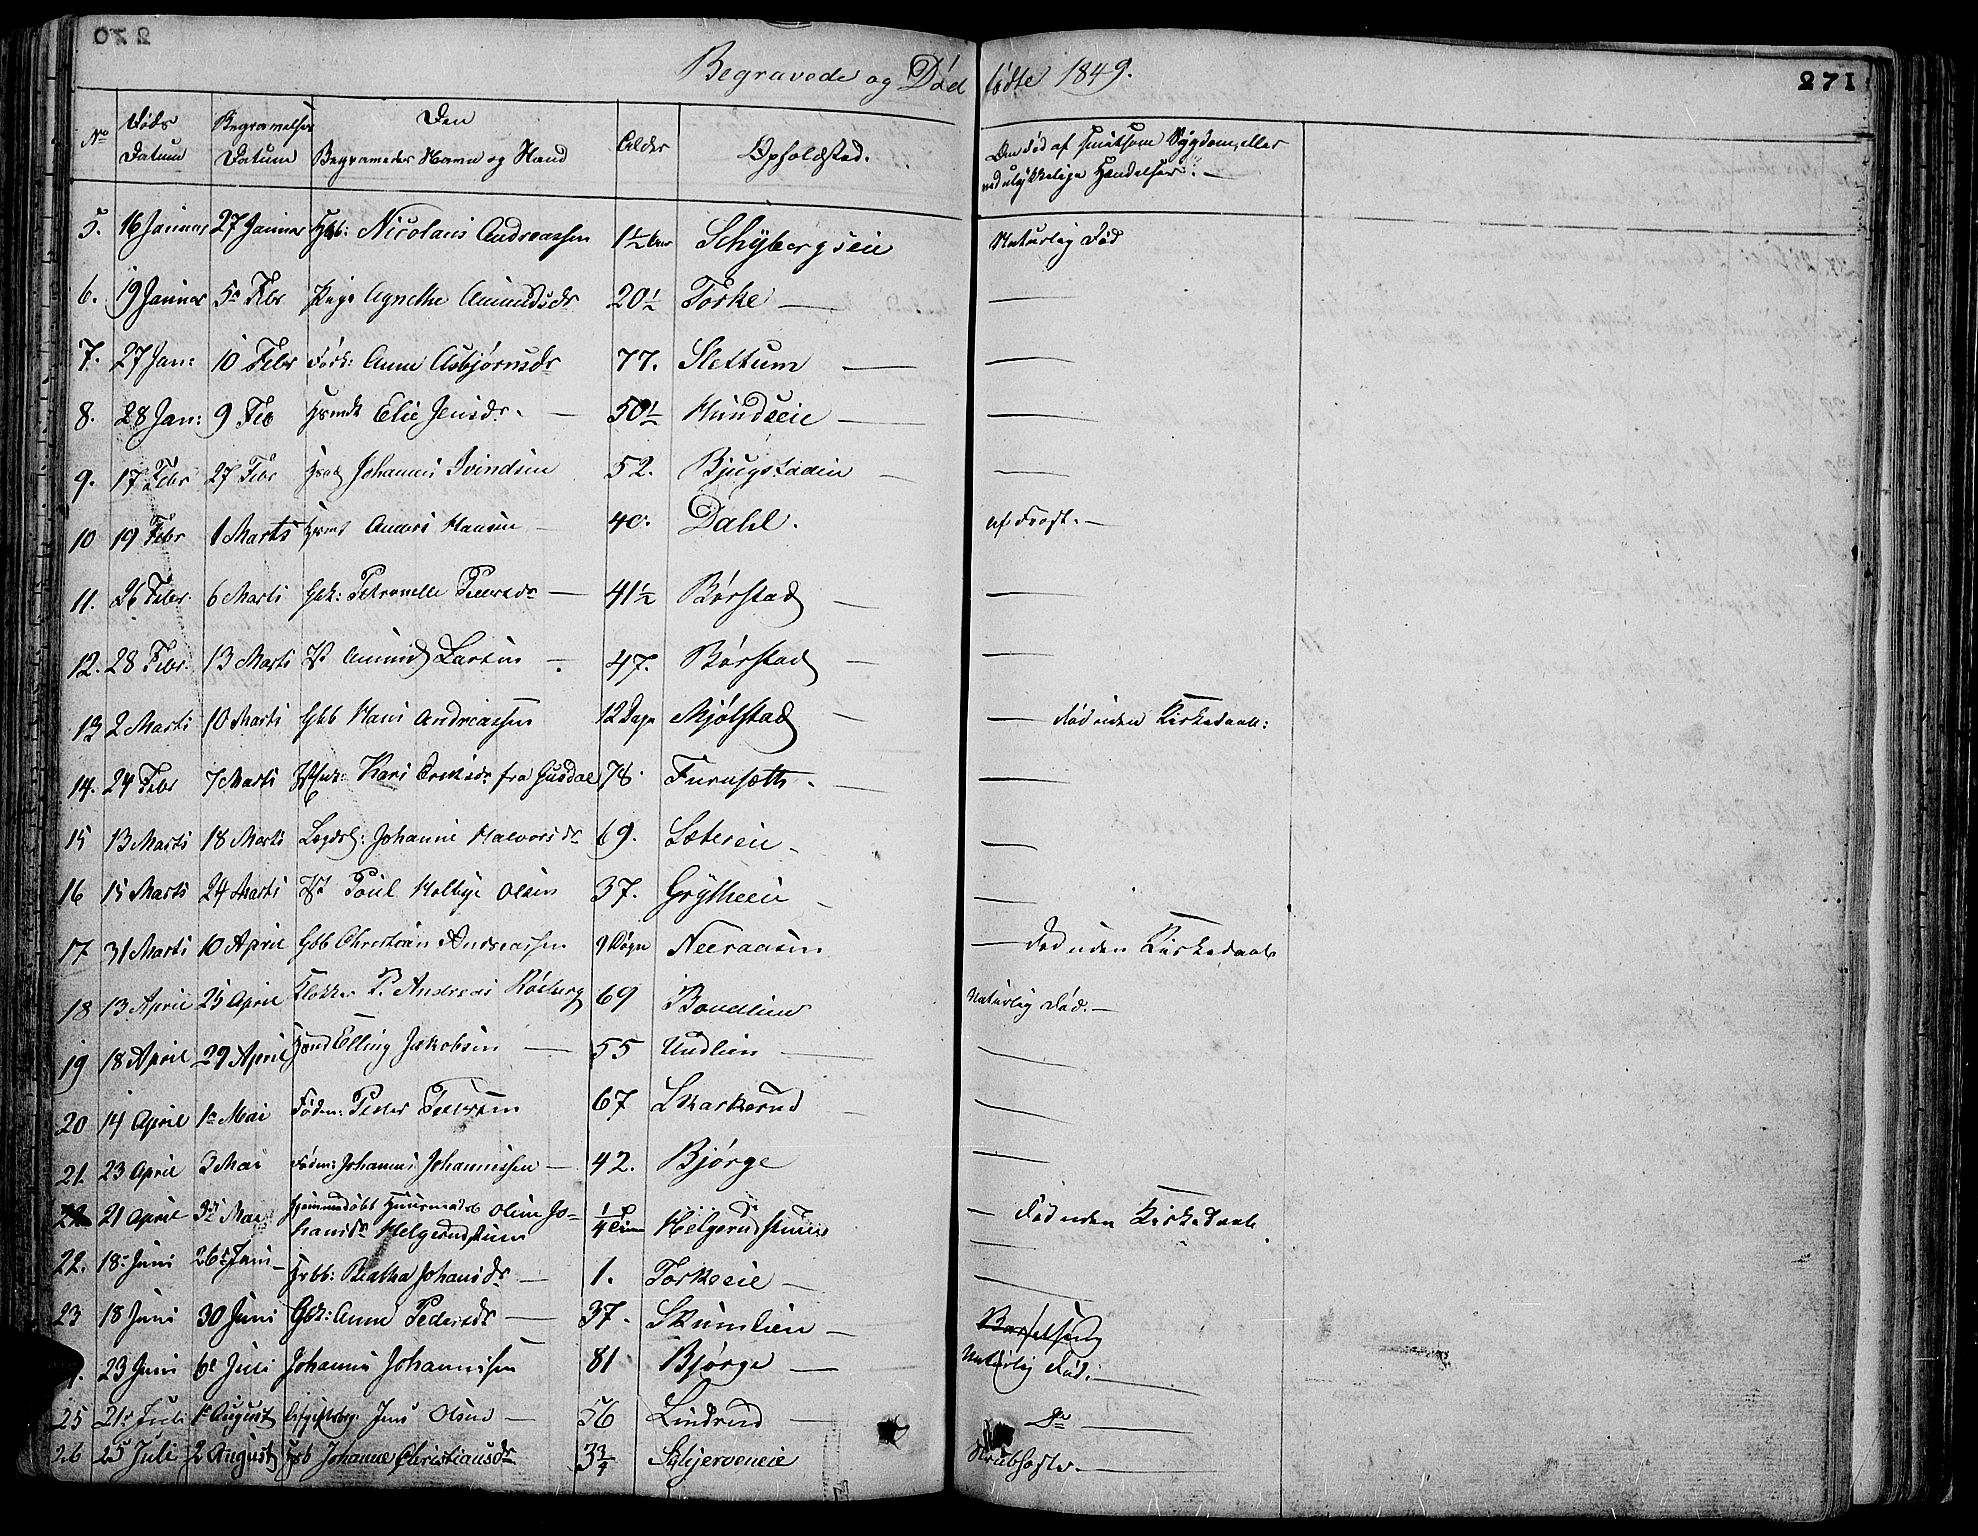 270
271
Begravede og Dødfødte 1849.
No Døds Datum Begravelses Datum Den Begravedes Navn og Stand Alder Opholdsted. Om Død af smitsom Sygdom, eller ved ulykkelige Hændelser. —
5. 16 Januar 27 Januar Nicolaus Andreassen 1½ Aar Schybergseie Naturlig Død
6. 19 Januar 5te Febr Pige Agnethe Amundsdr 20½ Torke —
7. 27 Jan: 10 Febr Føderk: Anne Asbjørnsdr 77. Slettum —
8. 28 Jan: 9 Feb Elie Jensdr. — 50½ Hundseie —
9. 17 Febr 27 Febr Johannes Ivindsen 52. Bjugstadeie —
10 19 Febr 1 Marts Anders Hansen — 40. Dahl. af Frost. —
11. 26 Febr. 6 Marts Gbk: Petronelle Pedersdr — 41½ Børstad —
12. 28 Febr. 13 Marts Amund Larsen — 47. Børstad —
13 2 Marts 10 Marts Gbb Hans Andreassen 12 Dage Mjølstad — — Død uden Kirkedaab:
14. 24 Febr 7 Marts Kari fra Gusdal 78. Furuseth. —
15 13 Marts 18 Marts Lægdsl: Johanne Halvorsdr 69. Sætereie —
16 15 Marts 24 Marts Poul Holbye Olsen 37. Grytheeie —
17 31 Marts 10 April Gbb Christian Andreassen 9 Døgn Neeraasen — Død uden Kirkedaab
18 13 April 25 April Klokker P. Andreas Kölberg 69 Naturlig Død. —
19 18 April 29 April Elling Jakobsen — 55 Undlien —
20 14 April 1te Mai Fødm: Peder Pedersen 67 Skarkerud —
21. 23 April 3 Mai Fødm: Johannes Johannessen — 42. Bjørge —
21 April 3die Mai Hjemmedøbt Oline Johansdr Helgerudstuen ¼ Helgerudstuen — Død uden Kirkedaab.
22. 18de Juni 26de Juni — Beatha Johansdr — 1. Torkeeie —
23 18 Juni 30 Juni Gbk: Anne Pedersdr — 37. Skumlien — Barselseng
23 Juni 6te Juli Johannes Johannessen 81 Bjørge — Naturlig Død. —
25 21de Juli 1te August Jens Olsen — 56 Lindrud — Do —
26 25 Juli 2 August Johanne Christiansdr 3¾ Skjerveneie Strubehoste. —